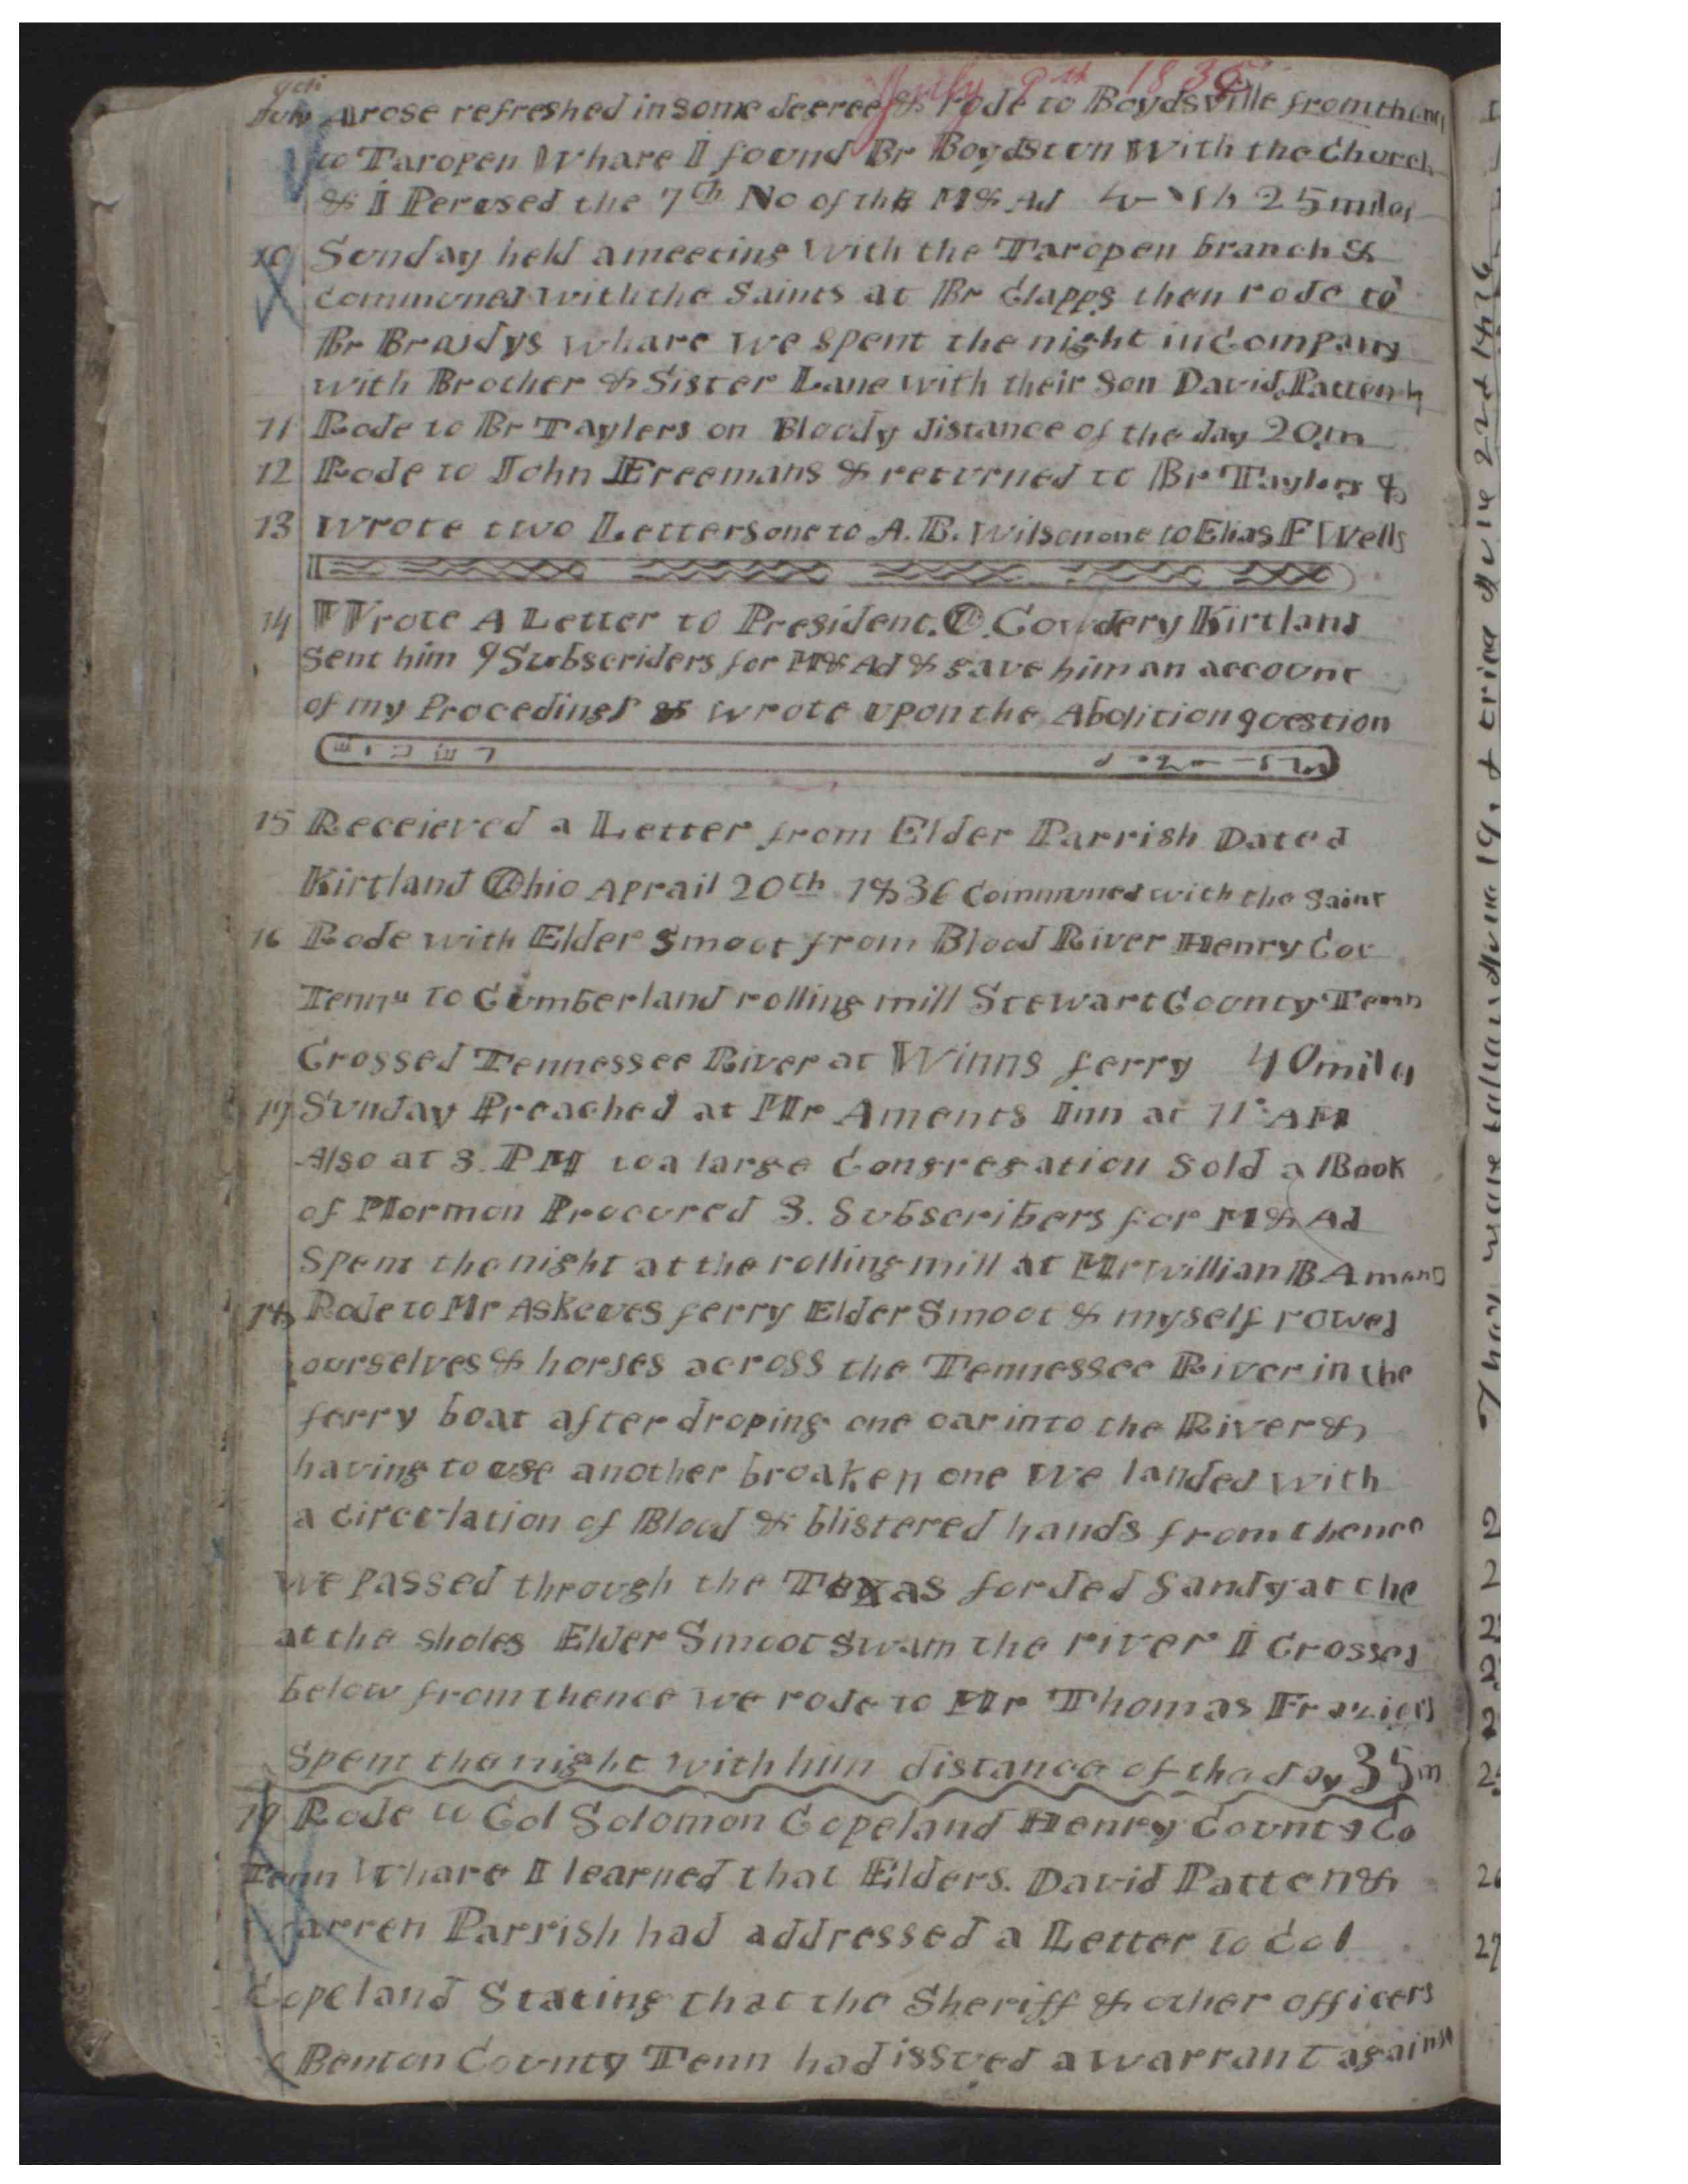 July 9th 1836
9th
July Arose refreshed in some degree & rode to Boydsville from thence
to Taropen Whare I found Br Boydston With the Church
& I Perused the 7th No of the M & Ad 25 miles
10 Sunday held a meeting with the Taropen branch &
communed with the Saints at Br Clapps then rode to
Br Braidys whare we spent the night in Company
with Brother & Sister Lane with their Son David Patten
11 Rode to Br Taylers on Bloody distance of the day 20 m
12 Rode to John Freemans & returned to Br Taylors &
13 wrote two Letters one to A. B. Wilson one to Elias F Wells
14 Wrote A Letter to President. O. Cowdery Kirtland
Sent him 9 Subscriders for M & Ad & gave him an account
of my Procedings & wrote upon the Abolition question
15 Receieved a Letter from Elder Parrish Dated
Kirtland Ohio Aprail 20th 1836 Communed with the Saint
16 Rode with Elder Smoot from Blood River Henry Cou
Tenn to Cumberland rolling mill Stewart County Tenn
Crossed Tennessee River at Winns ferry 40 miles
17 Sunday Preached at Mr Aments Inn at 11 AM
Also at 3. PM to a large Congregation Sold a Book
of Mormon Procured 3. Subscribers for M & Ad
Spent the night at the rolling mill at Mr Willian B Aments
18 Rode to Mr Askeues ferry Elder Smoot & myself rowed
ourselves & horses across the Tennessee River in the
ferry boat after droping one oar into the River &
having to use another broaken one we landed with
a circulation of Blood & blistered hands from thence
we passed through the Texas forded Sandy at the
at the sholes Elder Smoot swam the river I Crossed
below from thence we rode to Mr Thomas Fraziers
Spent the night with him distance of the day 35 m
19 Rode to Col Solomon Copeland Henry County Co
Tenn Whare I learned that Elders. David Patten &
Warren Parrish had addressed a Letter to Col
Copeland Stating that the Sheriff & other officers
Benton County Tenn had issued a warrant against